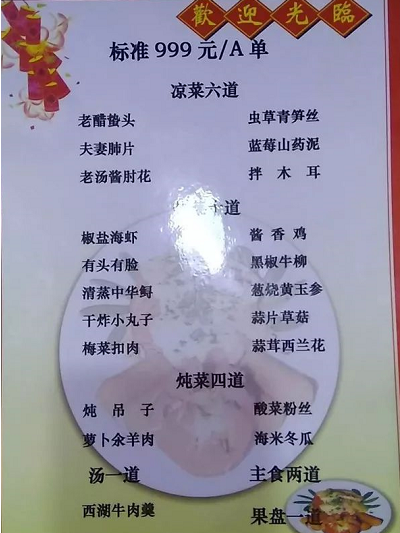 歡迎光臨
标准 999 元/A 单
凉菜六道
老醋蛰头 虫草青笋丝
夫妻肺片 蓝莓山药泥
老汤酱肘花 拌木耳
十道
椒盐海虾 酱香鸡
有头有脸 黑椒牛柳
清蒸中华鲟 葱烧黄玉参
干炸小丸子 蒜片草菇
梅菜扣肉 蒜茸西兰花
炖菜四道
炖吊子 酸菜粉丝
萝卜汆羊肉 海米冬瓜
汤一道 主食两道
西湖牛肉羹 果盘一道